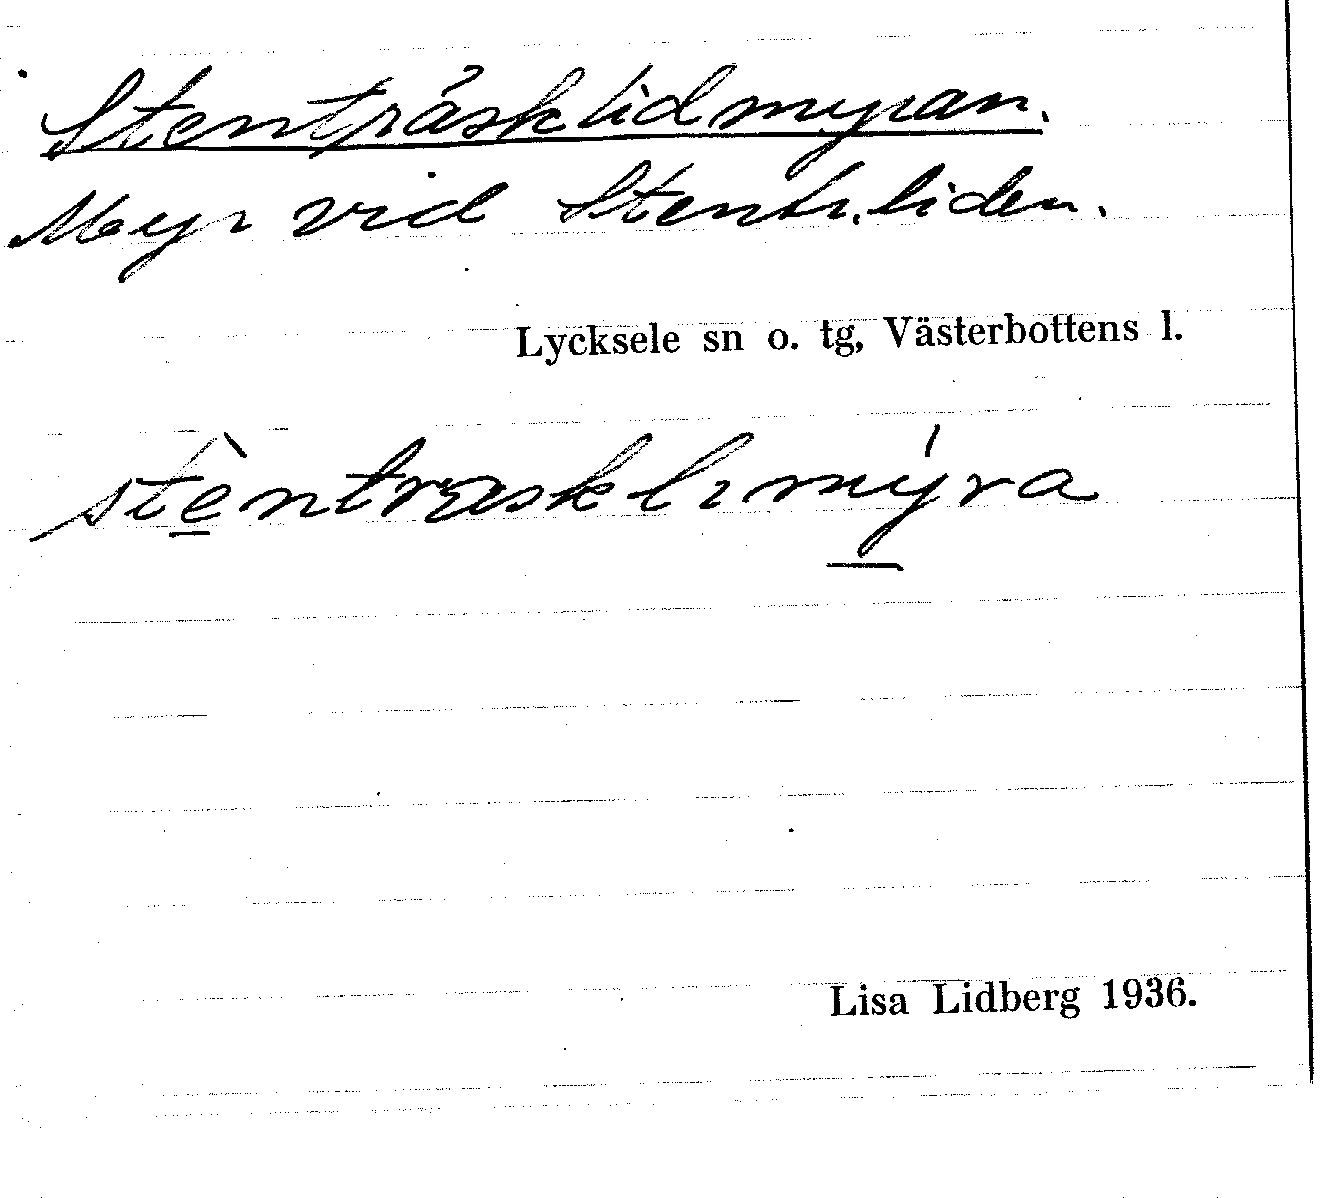 Stenträsklidmyran.
Myr vid Stentr.liden.
Lycksele sn o. tg, Västerbottens l.
stèntræsklımýra
Lisa Lidberg 1936.